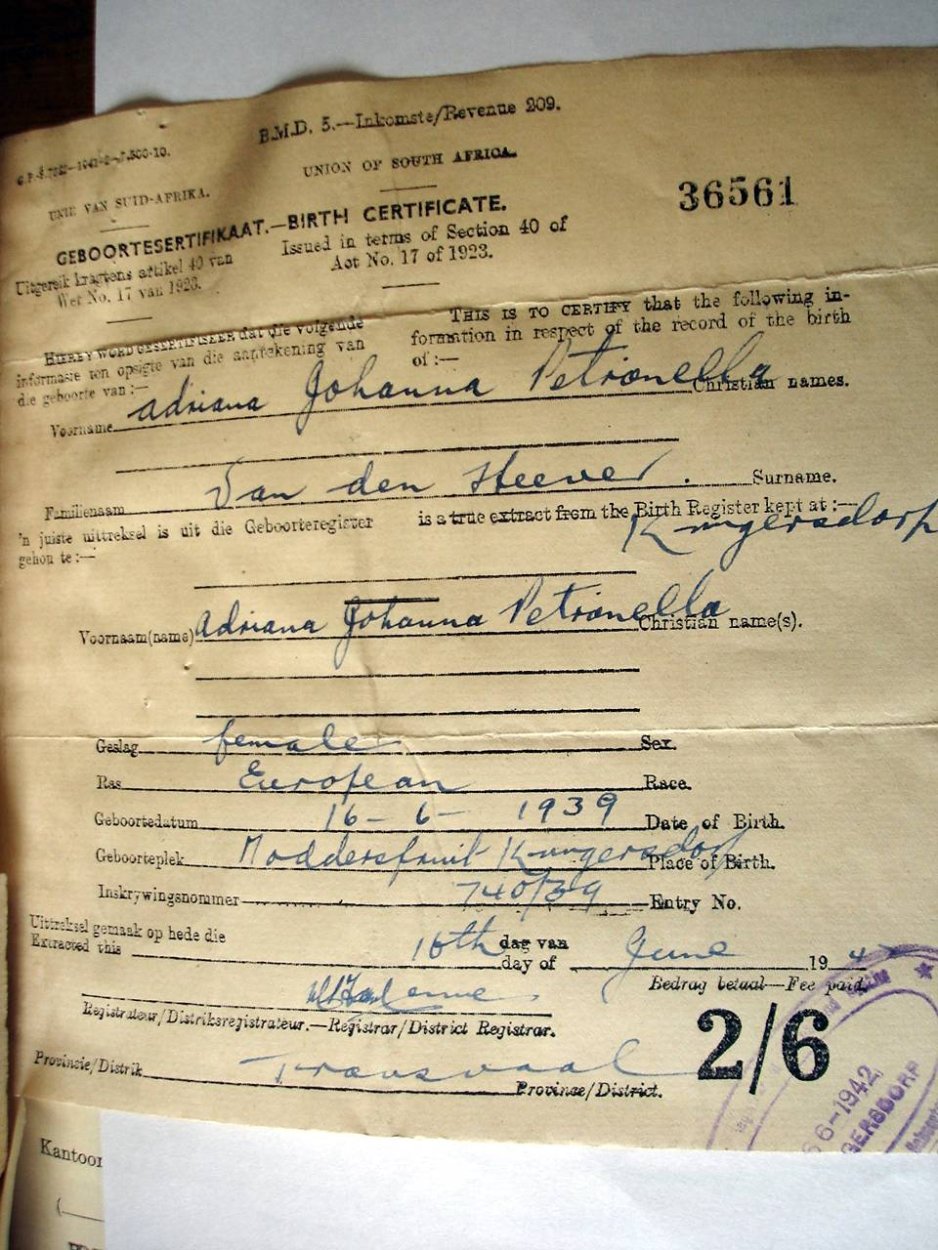 B.M.D. 5.—Inkomste/Revenue 209.
UNIE VAN SUID-AFRIKA.
UNION OF SOUTH AFRICA.
36561
GEBOORTESERTIFIKAAT.—BIRTH CERTIFICATE.
Uitgereik kragtens artikel 40 van
Wet No. 17 van 1923.
Issued in terms of Section 40 of
Act No. 17 of 1923.
HIERBY WORD GESERTIFISEER dat die volgende
informasie ten opsigte van die aantekening van
die geboorte van :—
THIS IS TO CERTIFY that the following in-
formation in respect of the record of the birth
of :—
Voorname adriana Johanna Petronella Christian names.
Familienaam Van den Heever. Surname.
'n juiste uittreksel is uit die Geboorteregister
gehou te :—
is a true extract from the Birth Register kept at :—
Krugersdorp
Voornaam(name) Adriana Johanna Petronella Christian name(s).
Geslag female Sex.
Ras European Race.
Geboortedatum 16-6-1939 Date of Birth.
Geboorteplek Krugersdorp Place of Birth.
Inskrywingsnommer 740/39 Entry No.
Uittreksel gemaak op hede die
Extracted this 16th dag van
day of June 194
Bedrag betaal—Fee paid.
Registrateur/Distriksregistrateur.—Registrar/District Registrar.
2/6
Provinsie/Distrik Transvaal Province/District.
6-1942
GERSDORP
Kantoor